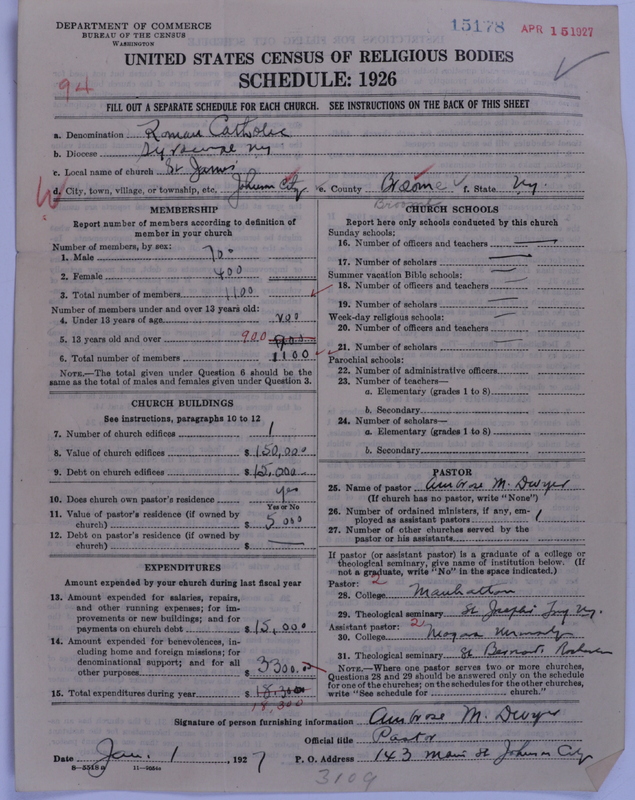 DEPARTMENT OF COMMERCE
BUREAU OF THE CENSUS
WASHINGTON
15178 APR 15 1927
UNITED STATES CENSUS OF RELIGIOUS BODIES
SCHEDULE: 1926
94
FILL OUT A SEPARATE SCHEDULE FOR EACH CHURCH. SEE INSTRUCTIONS ON THE BACK OF THIS SHEET
a. Denomination Roman Catholic
b. Diocese Syracuse NY
c. Local name of church St James
d. City, town, village, or township, etc. Johnson City e. County Broome f. State N.Y.
Broome
MEMBERSHIP
Report number of members according to definition of
member in your church
Number of members, by sex:
1. Male 700
2. Female 400
3. Total number of members 1100
Number of members under and over 13 years old:
4. Under 13 years of age 200
5. 13 years old and over 900 900
6. Total number of members 1100
NOTE.—The total given under Question 6 should be
the same as the total of males and females given under Question 3.
CHURCH BUILDINGS
See instructions, paragraphs 10 to 12
7. Number of church edifices 1
8. Value of church edifices $ 150,000
9. Debt on church edifices $ 15,000
10. Does church own pastor's residence yes
Yes or No
11. Value of pastor's residence (if owned by
church) $ 5000
12. Debt on pastor's residence (if owned by
church) $
EXPENDITURES
Amount expended by your church during last fiscal year
13. Amount expended for salaries, repairs,
and other running expenses; for im-
provements or new buildings; and for
payments on church debt $ 15,000
14. Amount expended for benevolences, in-
cluding home and foreign missions; for
denominational support; and for all
other purposes $ 3300.00
15. Total expenditures during year $ 18,300
18,300
CHURCH SCHOOLS
Report here only schools conducted by this church
Sunday schools:
16. Number of officers and teachers
17. Number of scholars
Summer vacation Bible schools:
18. Number of officers and teachers
19. Number of scholars
Week-day religious schools:
20. Number of officers and teachers
21. Number of scholars
Parochial schools:
22. Number of administrative officers
23. Number of teachers—
a. Elementary (grades 1 to 8)
b. Secondary
24. Number of scholars—
a. Elementary (grades 1 to 8)
b. Secondary
PASTOR
25. Name of pastor Ambrose M. Dwyer
(If church has no pastor, write "None")
26. Number of ordained ministers, if any, em-
ployed as assistant pastors 1
27. Number of other churches served by the
pastor or his assistants
If pastor (or assistant pastor) is a graduate of a college or
theological seminary, give name of institution below. (If
not a graduate, write "No" in the space indicated.)
Pastor: 2
28. College Manhattan
29. Theological seminary St Josephs N.Y.
Assistant pastor: 2
30. College Niagara University
31. Theological seminary St Bernards Rochester
NOTE.—Where one pastor serves two or more churches,
Questions 28 and 29 should be answered only on the schedule
for one of the churches; on the schedules for the other churches,
write "See schedule for church."
Signature of person furnishing information Ambrose M. Dwyer
Official title Pastor
Date Jan. 1, 1927 P. O. Address 143 Main St Johnson City
8—5518 a
3109